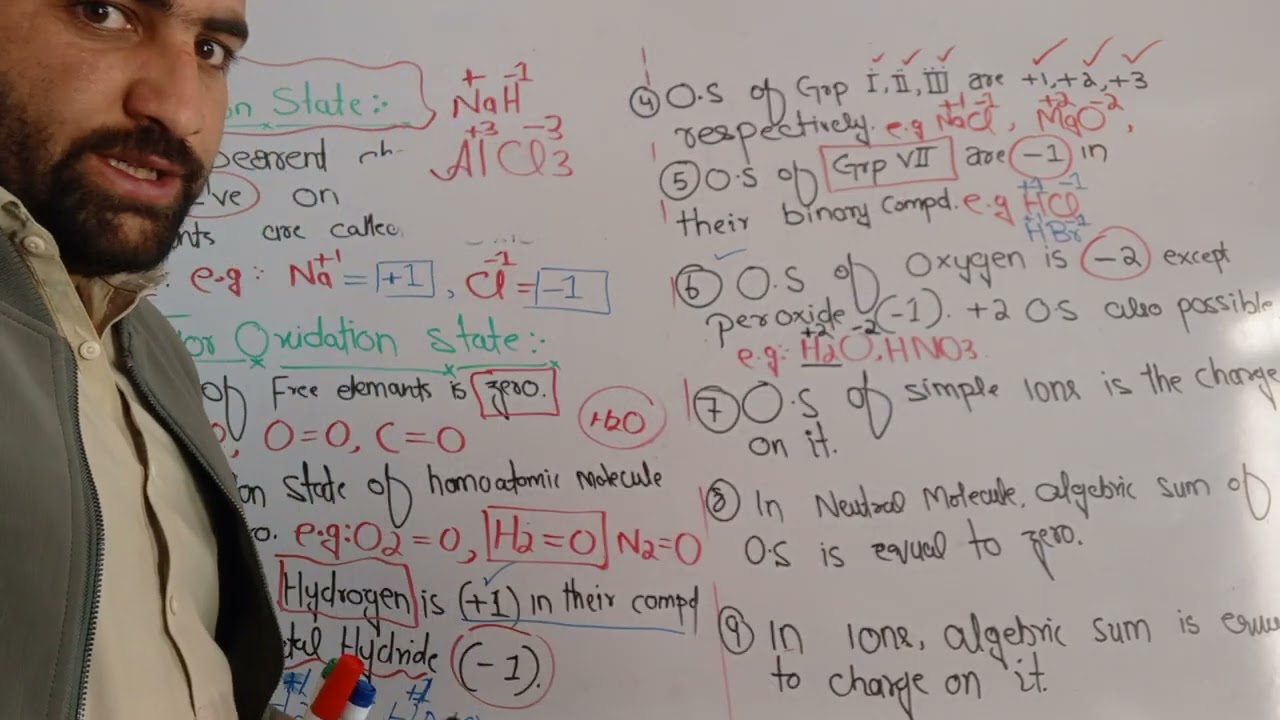 on State:-
+ -1
NaH
+3 -3
AlCl3
've on
are called
e.g: Na+1 = +1, Cl-1 = -1
for Oxidation state:-
of Free elemants is zero.
O=0, C=0
H2O
on state of homoatomic Molecule
o. e.g:O2=0, H2=0 N2=0
Hydrogen is (+1) in their compd
tal Hydride (-1).
④ O.S of Grp I, II, III are +1,+2,+3
respectively. e.g Na+1Cl-1, Mg+2O-2,
⑤ O.S of Grp VII are -1 in
their binary compd. e.g H+1Cl-1
H+1Br-1
⑥ O.S of Oxygen is -2 except
peroxide (-1). +2 O.S also possible
e.g:- H2+2O-2, HNO3.
⑦ O.S of simple Ions is the charge
on it.
⑧ In Neutral Molecule, algebric sum of
O.S is equal to zero.
⑨ In Ions, algebric sum is
to charge on it.